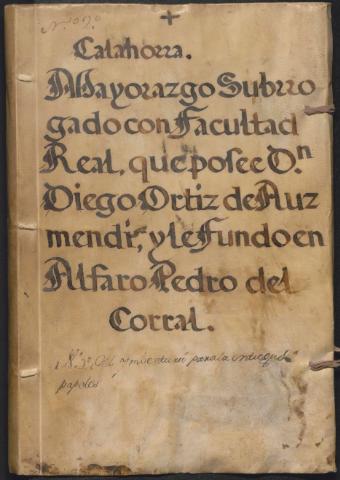 +
Calahorra.
Mayorazgo Subrro
gado con Facultad
Real, que posee D.n
Diego Ortiz de Auz
mendi; y le Fundo en
Alfaro Pedro del
Corral.
para la
papeles